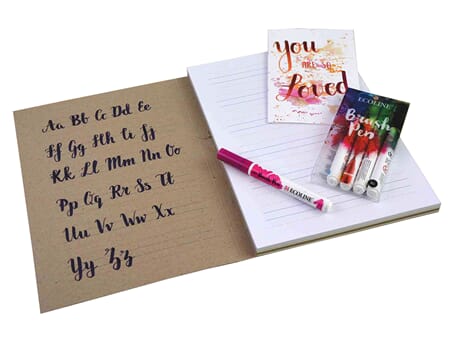 Aa Bb Cc Dd Ee
Ff Gg Hh Ii Jj
Kk Ll Mm Nn Oo
Pp Qq Rr Ss Tt
Uu Vv Ww Xx
Yy Zz
You
ARE SO
Loved
ECOLINE
Brush
Pen
ECOLINE